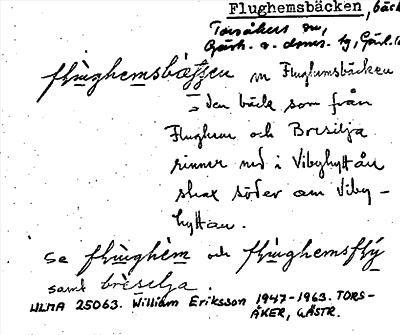 Flughemsbäcken, bäck
Torsåkers sn,
Gästr. o. doms. tg, Gävl. l
flùghemsbæ̀ssen m Flughemsbäcken
= den bäck som från
Flughem och Bresilja
rinner ned i Vibyhyttån
strax söder om Viby-
hyttan.
Se flùghèm och flùghemsflý
samt brèsilja.
ULMA 25063. William Eriksson 1947-1963. TORS-
ÅKER, GÄSTR.